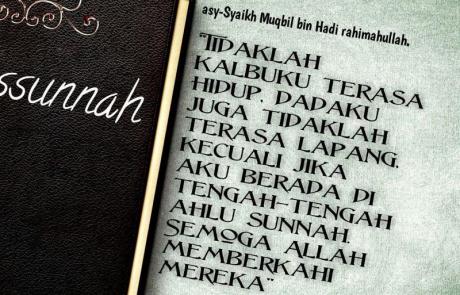 ssunnah
asy-Syaikh Muqbil bin Hadi rahimahullah,
"TIDAKLAH
KALBUKU TERASA
HIDUP, DADAKU
JUGA TIDAKLAH
TERASA LAPANG,
KECUALI JIKA
AKU BERADA DI
TENGAH-TENGAH
AHLU SUNNAH.
SEMOGA ALLAH
MEMBERKAHI
MEREKA"